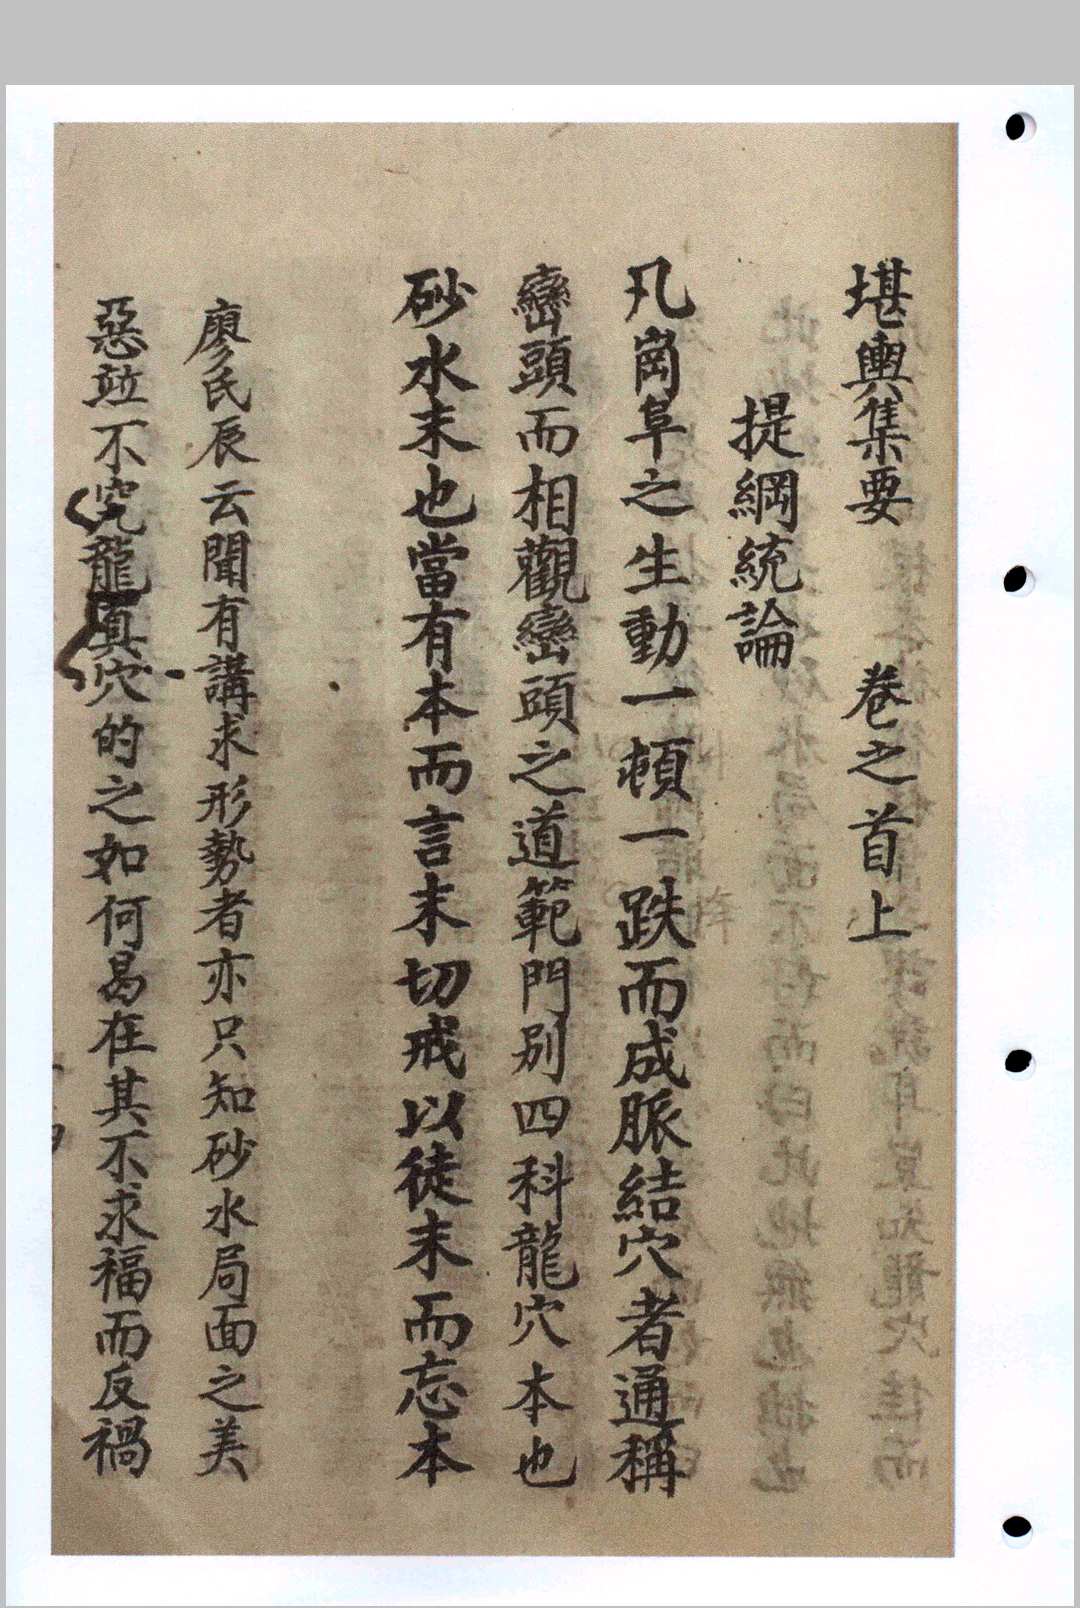 堪輿集要　卷之首上
提綱統論
凡崗阜之生動一頓一跌而成脈結穴者通稱
巒頭而相觀巒頭之道範門別四科龍穴本也
砂水末也當有本而言末切戒以徒末而忘本
廖氏辰云聞有講求形勢者亦只知砂水局面之美
惡竝不究龍真穴的之如何曷在其不求福而反禍